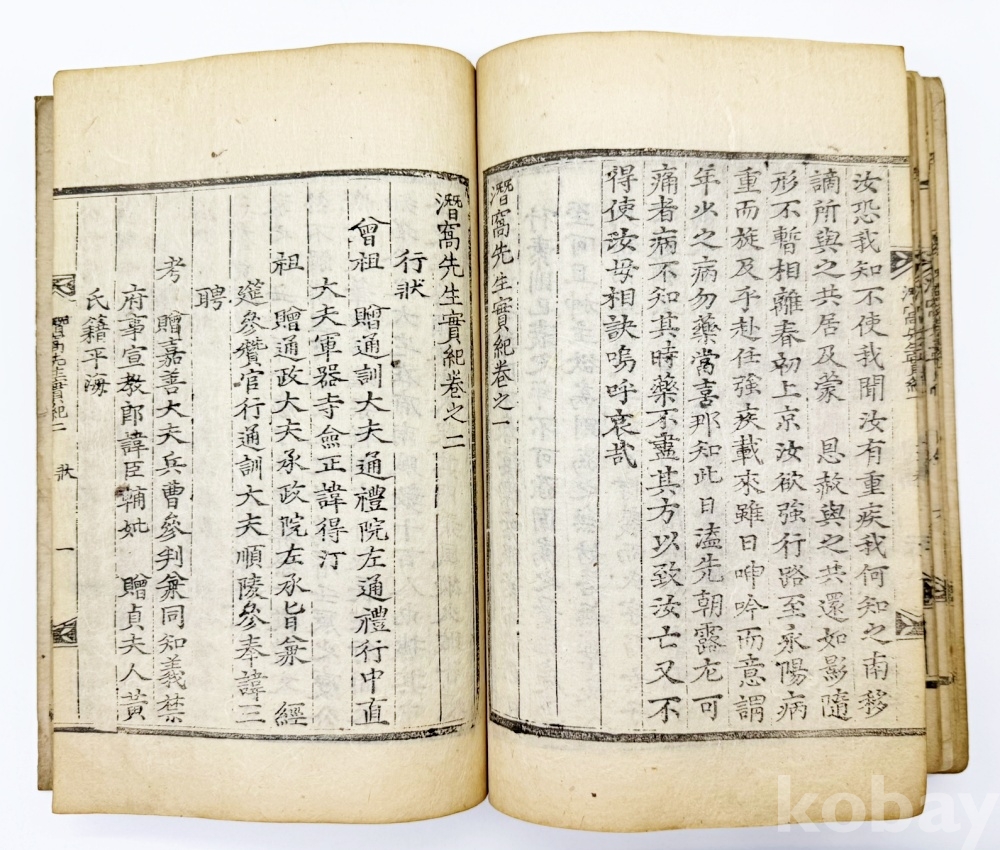 汝恐我知不使我聞汝有重疾我何知之南移
謫所與之共居及蒙 恩赦與之共還如影隨
形不暫相離春初上京汝欲強行路至永陽病
重而旋及乎赴任強疾載來雖日呻吟而意謂
年少之病勿藥當喜那知此日溘先朝露尤可
痛者病不知其時藥不盡其方以致汝亡又不
得使汝母相訣嗚呼哀哉
潛窩先生實紀卷之一
潛窩先生實紀卷之二
行狀
曾祖 贈通訓大夫通禮院左通禮行中直
大夫軍器寺僉正諱得汀
祖 贈通政大夫承政院左承旨兼 經
筵參贊官行通訓大夫順陵參奉諱三
聘
考 贈嘉善大夫兵曹參判兼同知義禁
府事宣敎郎諱臣輔妣 贈貞夫人黃
氏籍平海
潛窩先生實紀二 狀 一
kobay